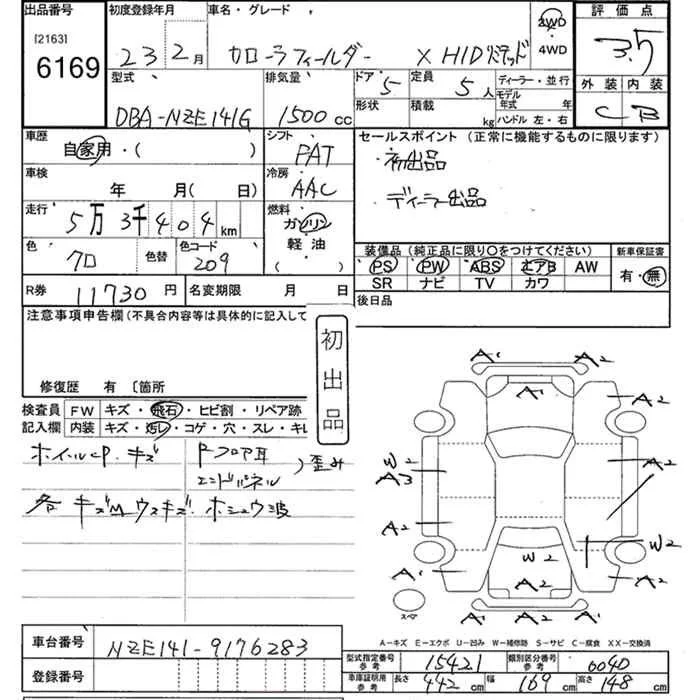 出品番号 初度登録年月 車名・グレード 2WD 評価点
[2163] 6169 23 2月 カローラフィールダー X HIDリミテッド 4WD 3.5
型式 排気量 ドア 5 定員 5人 ディーラー・並行 外装 内装
DBA-NZE141G 1500cc 形状 積載 kg モデル年式 年 ハンドル 左・右 C B
車歴 自家用・( ) シフト FAT セールスポイント (正常に機能するものに限ります)
車検 年 月( 日) 冷房 AAC ・初出品
走行 5万3千404km 燃料 ガソリン ・ディーラー出品
色 クロ 色替 色コード 209 軽油 ( ) 装備品 (純正品に限り○をつけてください) 新車保証書
PS PW ABS エアB AW 有・無
SR ナビ TV カワ
R券 11730円 名変期限 月 日 後日品
注意事項申告欄 (不具合内容等は具体的に記入して
初出品
修復歴 有 〔箇所
検査員 FW キズ・飛石・ヒビ割・リペア跡
記入欄 内装 キズ・汚レ・コゲ・穴・スレ・キレ
ホイールCP.キズ Rフロア耳
エンドパネル )歪み
各 キズM ウスキズ. ホシュウ波
A1 A2
A1
A2
W2 A3 A2
A2
W2 W2
A1 A2 A2
A2 A1
スペア
A-キズ E-エクボ U-凹み W-補修跡 S-サビ C-腐食 XX-交換済
車台番号 NZE141-9176283
型式指定番号 参考 15421 類別区分番号 参考 0040
登録番号
車庫証明用 参考 長さ 442cm 幅 169cm 高さ 148cm